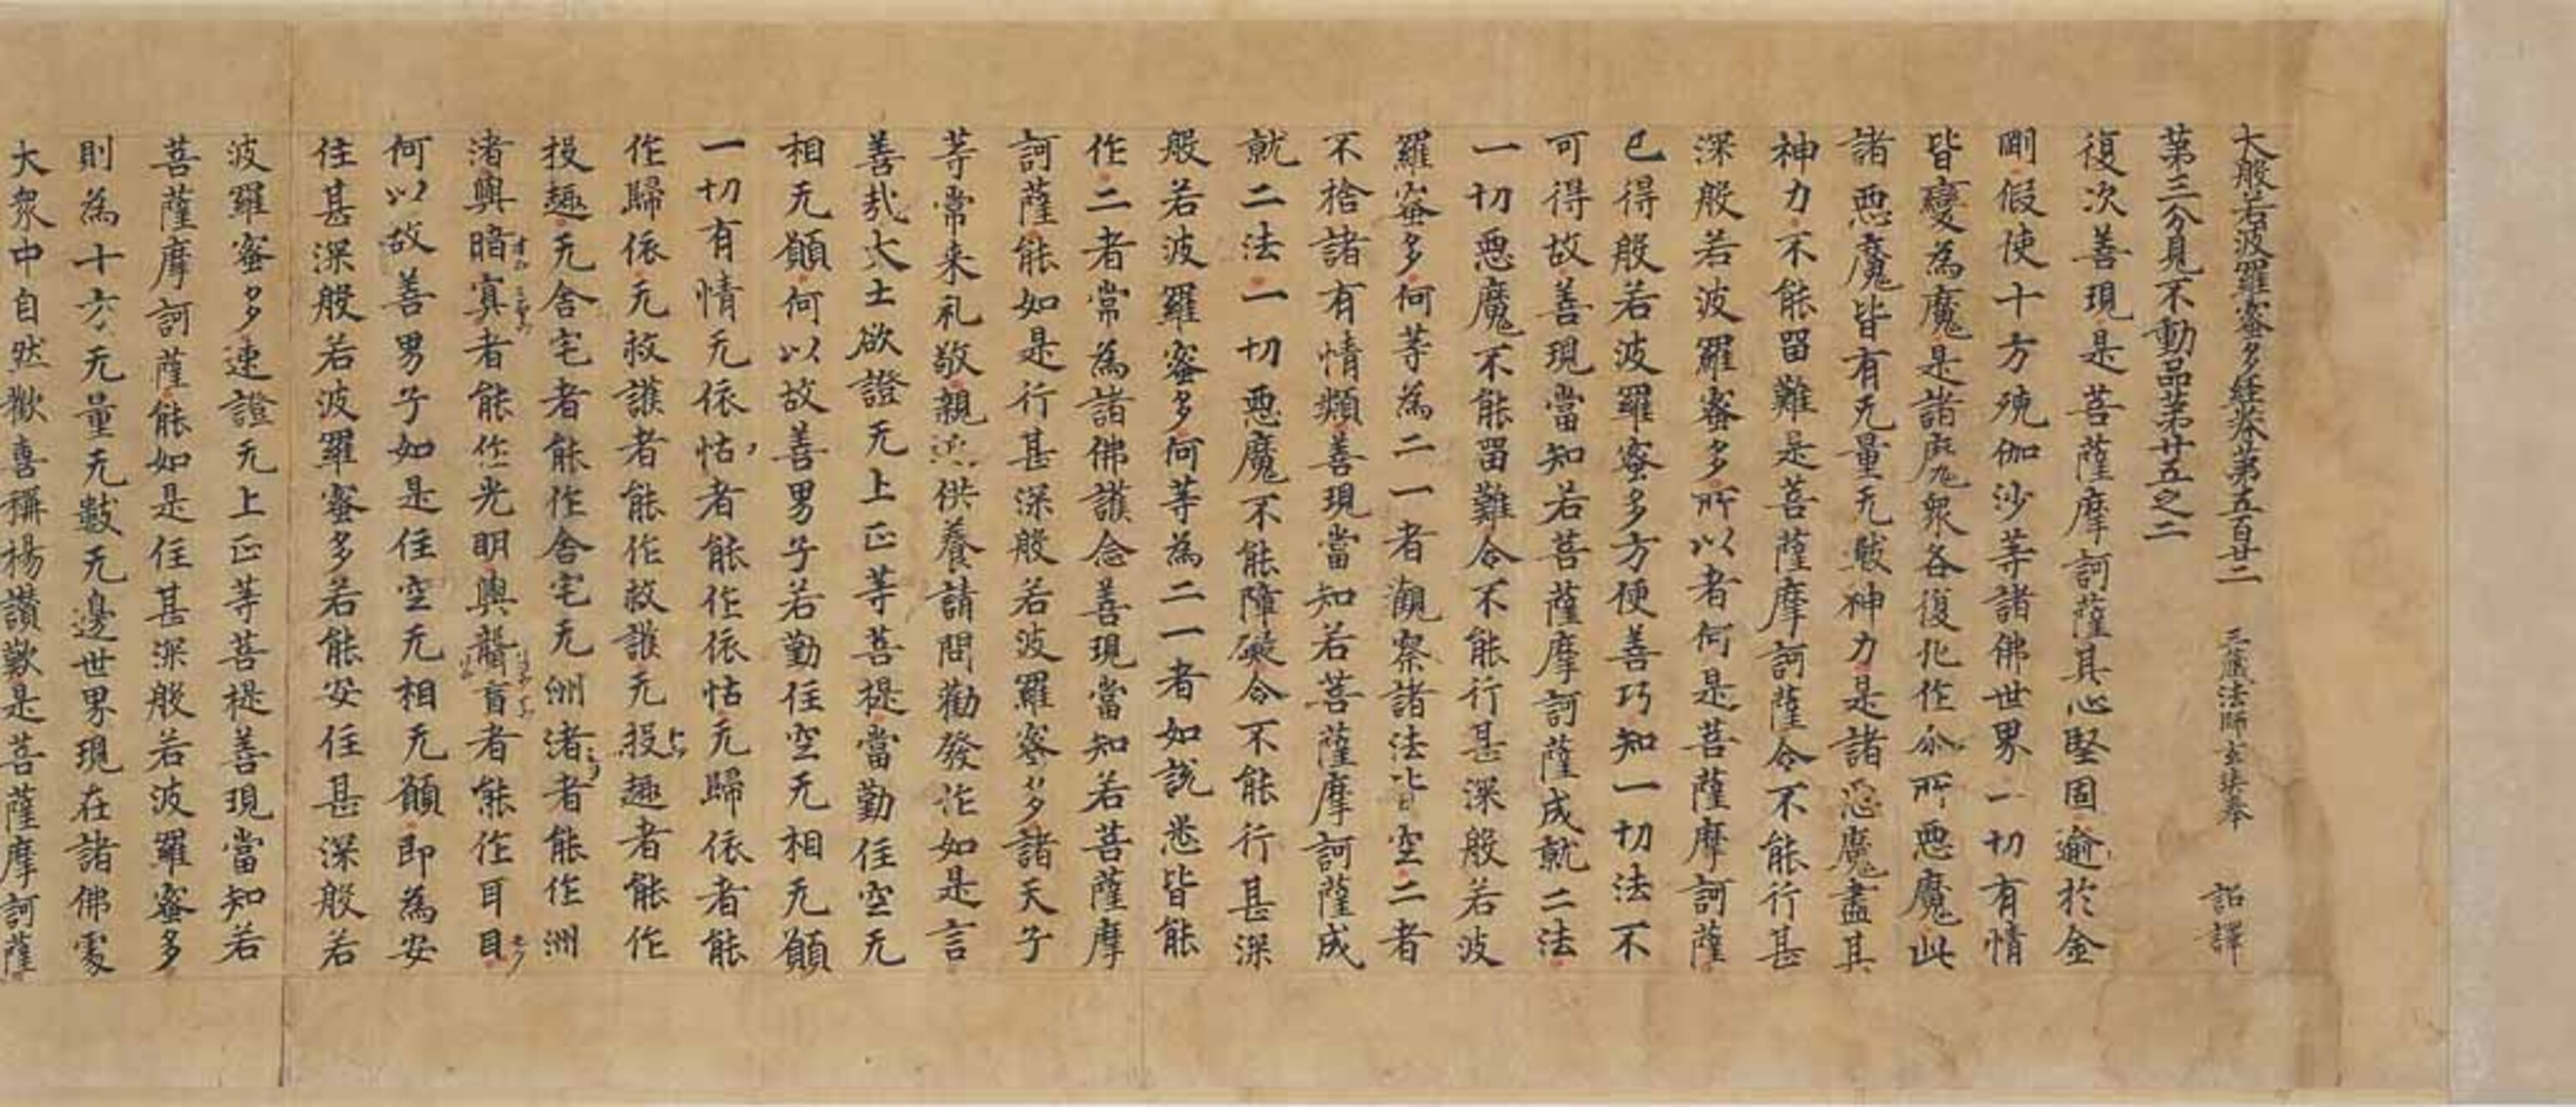 大般若波羅蜜多経巻第五百廿二 三蔵法師玄奘奉 詔譯
第三分見不動品第廿五之二
復次善現是菩薩摩訶薩其心堅固逾於金
剛假使十方殑伽沙等諸佛世界一切有情
皆變為魔是諸魔衆各復化作尒所悪魔此
諸悪魔皆有无量无數神力是諸惡魔盡其
神力不能留難是菩薩摩訶薩令不能行甚
深般若波羅蜜多所以者何是菩薩摩訶薩
已得般若波羅蜜多方便善巧知一切法不
可得故善現當知若菩薩摩訶薩成就二法
一切悪魔不能留難令不能行甚深般若波
羅蜜多何等為二一者觀察諸法皆空二者
不捨諸有情類善現當知若菩薩摩訶薩成
就二法一切悪魔不能障礙令不能行甚深
般若波羅蜜多何等為二一者如說悉皆能
作二者常為諸佛護念善現當知若菩薩摩
訶薩能如是行甚深般若波羅蜜多諸天子
等常来礼敬親近供養請問勸發作如是言
善哉大士欲證无上正等菩提當勤住空无
相无願何以故善男子若勤住空无相无願
一切有情无依怙者能作依怙无歸依者能
作歸依无救護者能作救護无投趣者能作
投趣无舍宅者能作舍宅无洲渚者能作洲
渚與暗冥者能作光明與聾盲者能作耳目
何以故善男子如是住空无相无願即為安
住甚深般若波羅蜜多若能安住甚深般若
波羅蜜多速證无上正等菩提善現當知若
菩薩摩訶薩能如是住甚深般若波羅蜜多
則為十方无量无數无邊世界現在諸佛處
大衆中自然歡喜稱楊讚歎是菩薩摩訶薩